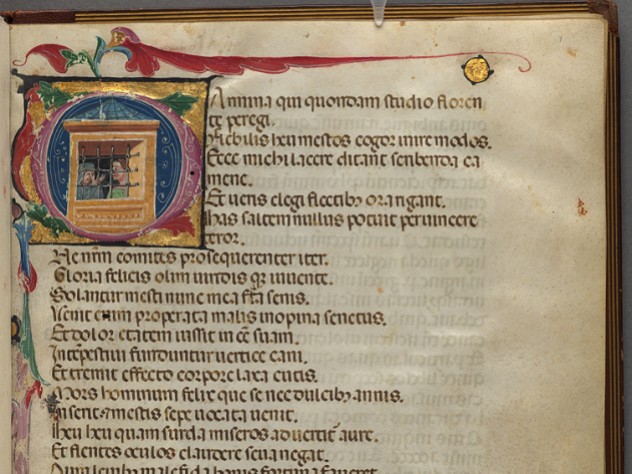 Carmina qui quondam studio floren
te peregi.
Flebilis heu mestos cogor inire modos.
Ecce michi lacere dictant scribenda ca
mene.
Et ueris elegi fletib; ora rigant.
has saltem nullus potuit peruincere
teror.
Ne nr̄m comites prosequerentur iter.
Gloria felicis olim uiridis q; iuuente.
Solantur mesti nunc mea fata senis.
Uenit enim properata malis inopina senectus.
Et dolor etatem iussit in ēē suam.
Intempestiui funduntur uertice cani.
Et tremit effecto corpore laxa cutis.
Mors hominum felix que se nec dulcib; annis.
Inserit ⁊ mestis sepe uocata uenit.
Heu heu quam surda miseros aduertit᷑ aure.
Et flentes oculos claudere seua negat.
Dum leuib; malefida bonis fortuna faueret